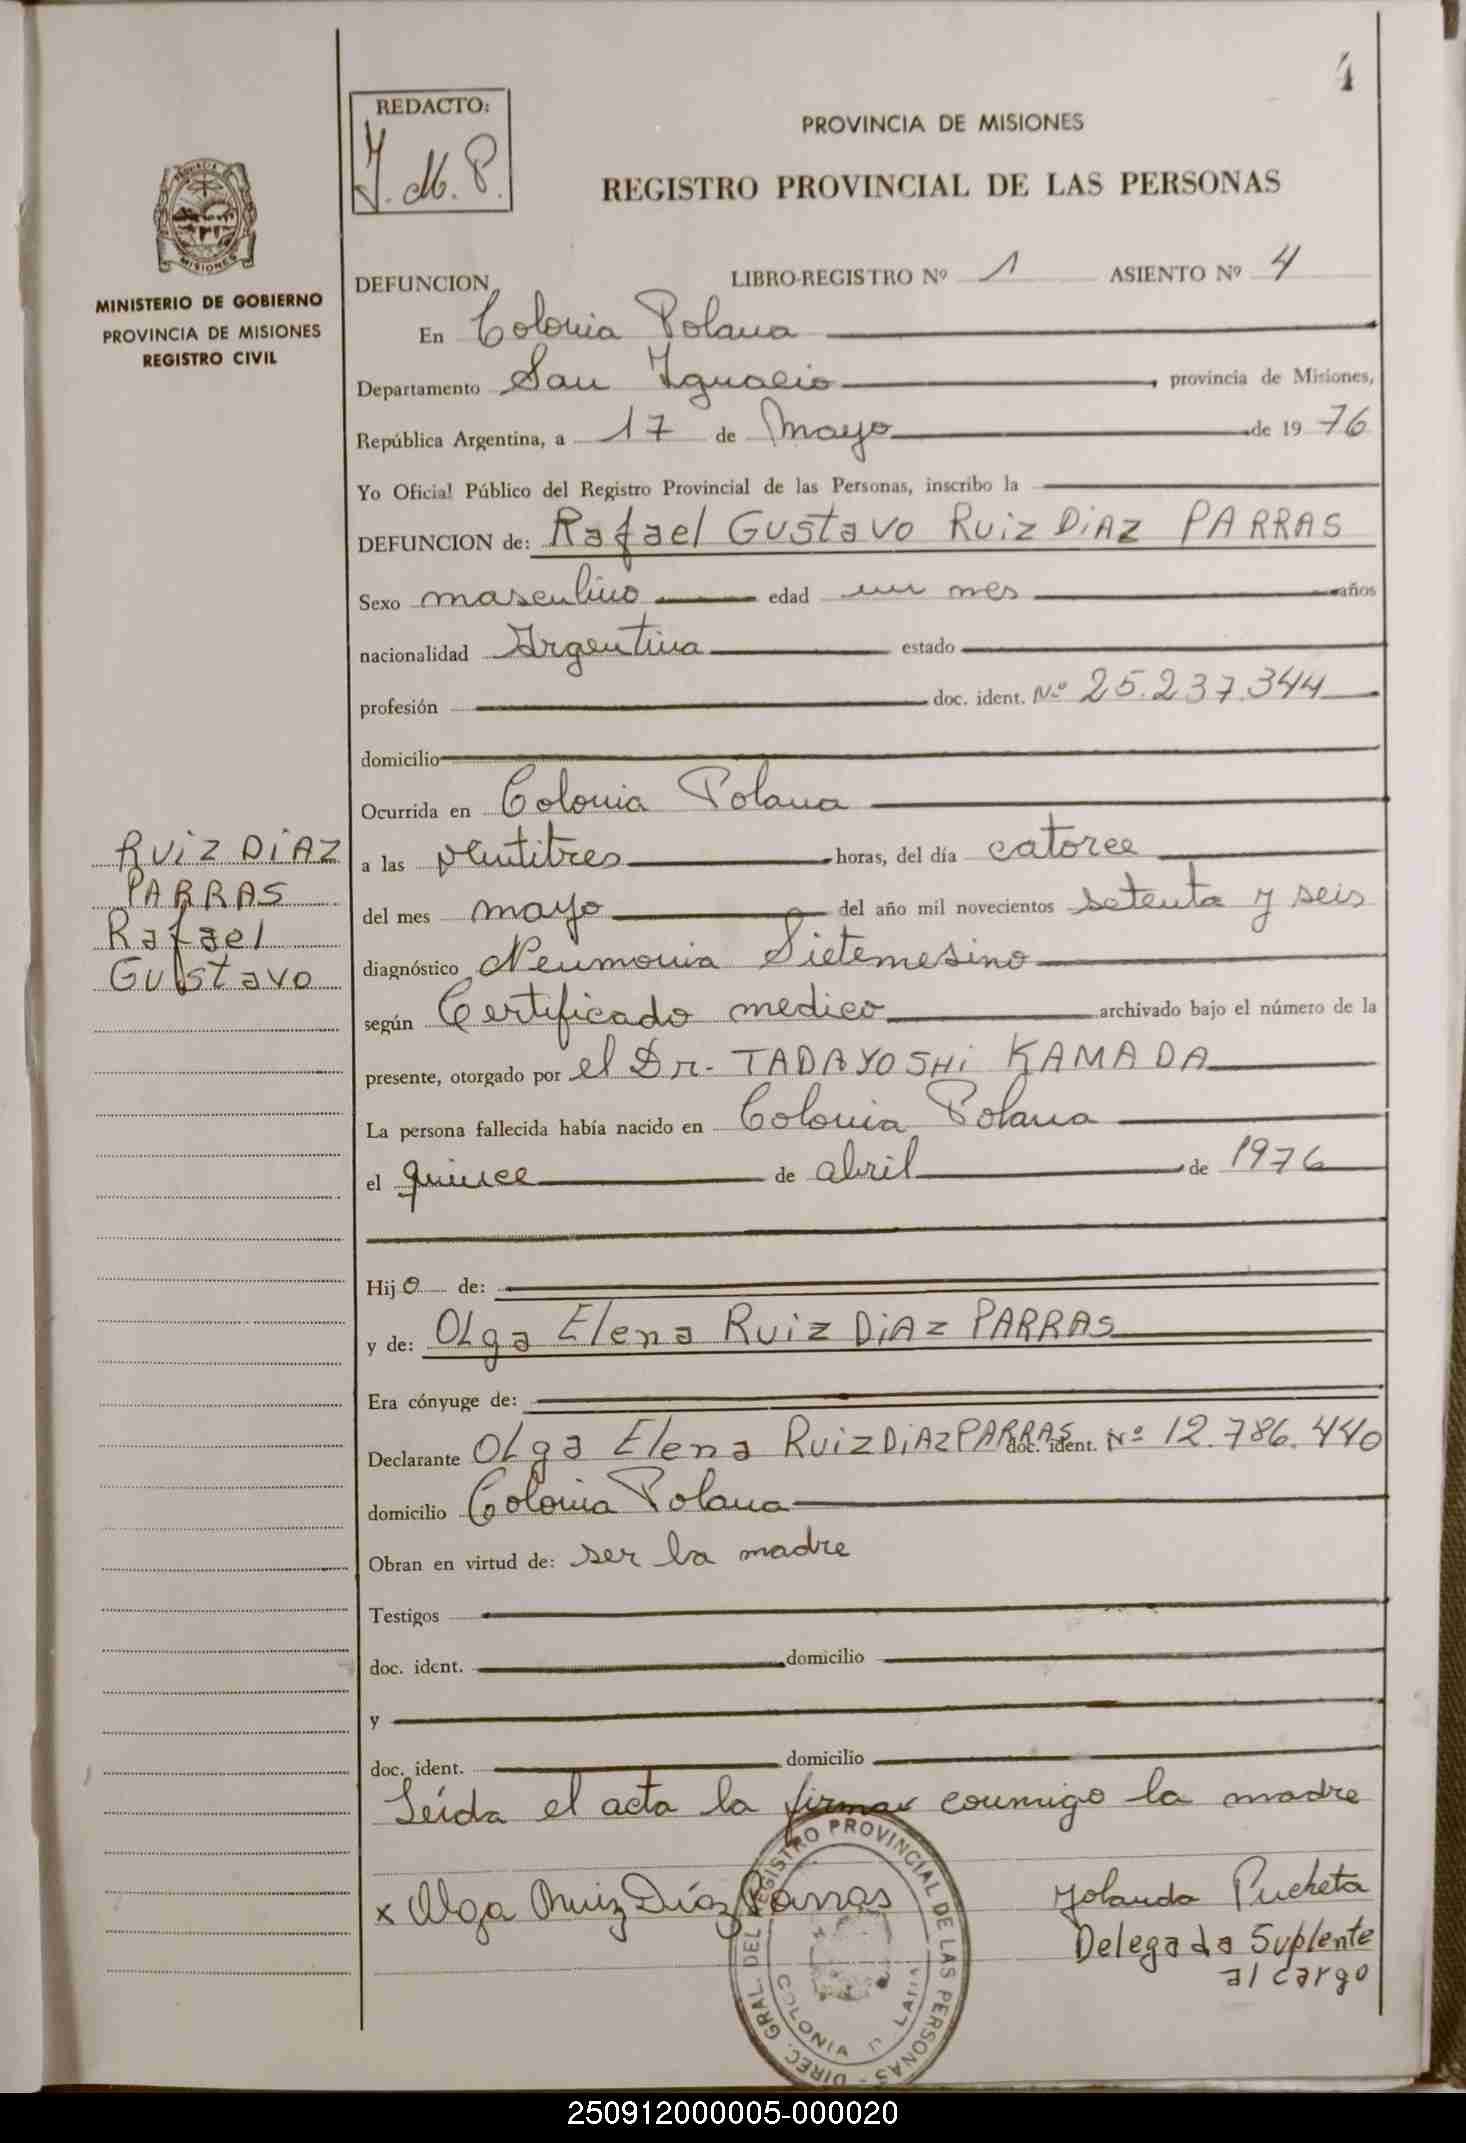 4
REDACTO:
Y. M. P.
PROVINCIA DE MISIONES
REGISTRO PROVINCIAL DE LAS PERSONAS
MISIONES
MINISTERIO DE GOBIERNO
PROVINCIA DE MISIONES
REGISTRO CIVIL
DEFUNCION LIBRO-REGISTRO Nº 1 ASIENTO Nº 4
En Colonia Polana
Departamento San Ygnacio, provincia de Misiones,
República Argentina, a 17 de Mayo de 1976
Yo Oficial Público del Registro Provincial de las Personas, inscribo la
DEFUNCION de: Rafael Gustavo Ruiz Diaz PARRAS
Sexo masculino edad un mes años
nacionalidad Argentina estado
profesión doc. ident. Nº 25.237.344
domicilio
Ocurrida en Colonia Polana
a las ventitres horas, del día catorce
del mes mayo del año mil novecientos setenta y seis
diagnóstico Neumonia Sietemesino
según Certificado medico archivado bajo el número de la
presente, otorgado por el Dr. TADAYOSHi KAMADA
La persona fallecida había nacido en Colonia Polana
el quince de abril de 1976
Hijo de:
y de: OLga Elena Ruiz DiAz PARRAS
Era cónyuge de:
Declarante OLga Elena Ruiz DiAz PARRAS doc. ident. Nº 12.786.440
domicilio Colonia Polana
Obran en virtud de: ser la madre
Testigos
doc. ident. domicilio
y
doc. ident. domicilio
Leída el acta la firma conmigo la madre
x Olga Ruiz Díaz Parras
Yolanda Pucheta
Delegada Suplente
al cargo
RUiZ DiAZ
PARRAS
Rafael
Gustavo
DIREC. GRAL. DEL REGISTRO PROVINCIAL DE LAS PERSONAS
COLONIA
250912000005-000020